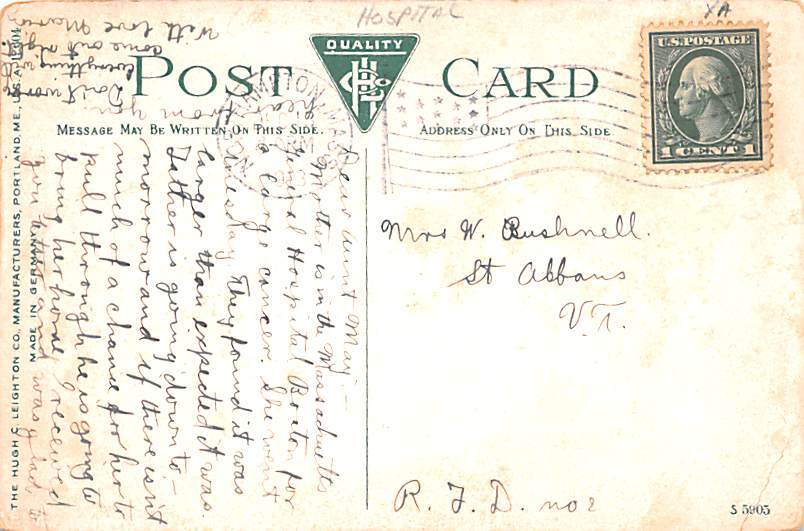 HOSPITAL
XA
POST CARD
QUALITY
MESSAGE MAY BE WRITTEN ON THIS SIDE.
ADDRESS ONLY ON THIS SIDE
U.S. POSTAGE
1 CENT 1
Dear Aunt May:—
Mother is in the Massachusetts
General Hospital Boston for
a large cancer. She went
Tuesday They found it was
larger than expected it was.
Father is going down to-
morrow and if there isn't
much of a chance for her to
pull through he is going to
bring her home. I received
your letter and was glad to
hear
from you
Don't worry
everything will
come out alright
With love Marion
Mrs W. Bushnell.
St Albans
VT.
R. F. D. no 2
THE HUGH C. LEIGHTON CO., MANUFACTURERS, PORTLAND, ME., U.S.A.
MADE IN GERMANY
S 5905